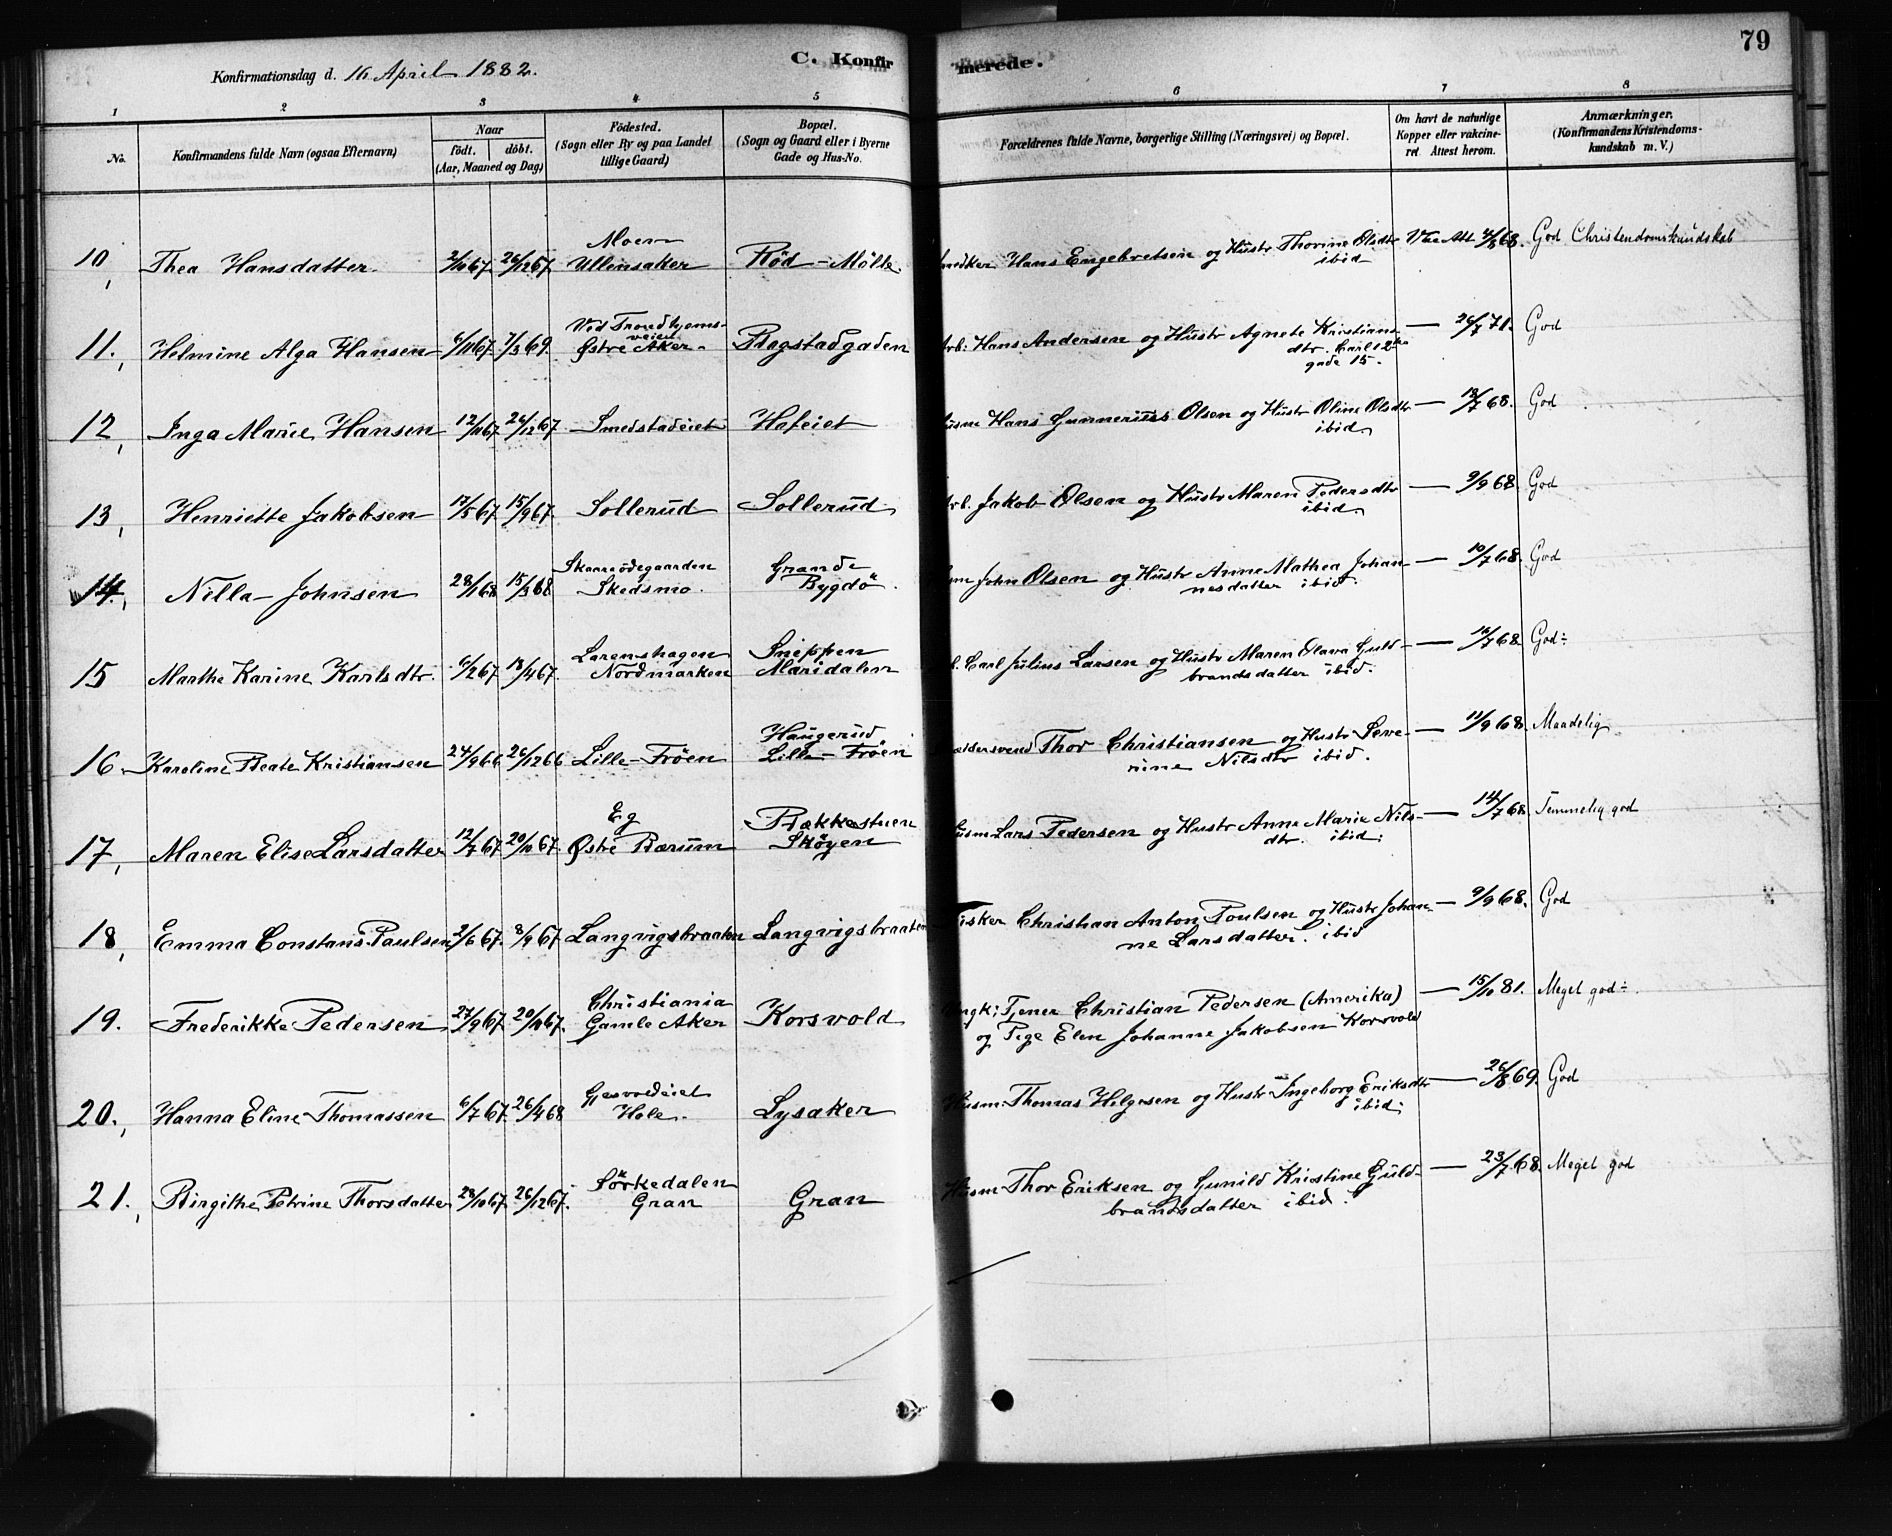 79
C. Konfirmerede.
Konfirmationsdag d. 16 April 1882.
1 2 3 4 5 6 7 8
No.
Konfirmandens fulde Navn (ogsaa Efternavn)
Naar
födt. döbt.
(Aar, Maaned og Dag)
Födested.
(Sogn eller By og paa Landet
tillige Gaard)
Bopæl.
(Sogn og Gaard eller i Byerne
Gade og Hus-No.
Forældrenes fulde Navne, borgerlige Stilling (Næringsvei) og Bopæl.
Om havt de naturlige
Kopper eller vakcine-
ret. Attest herom.
Anmærkninger.
(Konfirmandens Kristendoms-
kundskab m. V.)
Moen
10, Thea Hansdatter 2/10 67 26/12 67 Ullensaker Röd - Mölle. Hans Engebretsen og Hustr Thorine Olsdtr Vac Att 4/8 68. God Christendomskundskab
ibid
Ved Trondhjems-
veien
11., Helmine Alga Hansen 6/11 67 7/3 69. Østre Aker Bogstadgaden Arb: Hans Andersen og Hustr Agnete Kristians- — 26/7 71. God
dtr. Carl 12tes
gade 15.
12, Inga Marie Hansen 12/11 67 26/12 67 Smedstadeiet Hofeiet Husm Hans Gunnerius Olsen og Hustr Oline Olsdtr — 18/7 68. God
ibid
13, Henriette Jakobsen 17/5 67 15/9 67. Sollerud Sollerud Arb. Jakob Olsen og Hustr Maren Pedersdtr — 9/9 68. God
ibid.
Skaareödegaarden Grande
14., Nilla Johnsen 28/1 68 15/3 68 Skedsmo. Bygdö. John Olsen og Hustr Anne Mathea Johan- — 10/7 68. God
nesdatter ibid.
Larenshagen Snippen
15 Marthe Karine Karlsdtr. 6/2 67 18/4 67. Nordmarken Maridalen Carl Julius Larsen og Hustr Maren Olava Guld- — 16/7 68. God÷
brandsdatter ibid.
Haugerud
16. Karoline Beate Kristiansen 24/9 66 26/12 66 Lille-Fröen Lille-Fröen Thor Christiansen og Hustr Seve- — 11/9 68. Maadelig
rine Nilsdtr ibid.
Eg Bækkestuen
17., Maren Elise Larsdatter 12/7 67 20/10 67. Østre Bærum Sköyen Husm Lars Pedersen og Hustr Anne Marie Nils- — 14/7 68. Temmelig god
dtr. ibid.
18, Emma Constans Paulsen 2/6 67. 8/9 67 Langvigsbraaten Langvigsbraaten Fisker Christian Anton Poulsen og Hustr Johan- — 9/9 68. God
ne Larsdatter. ibid
Christiania
19. Frederikke Pedersen 27/9 67. 20/10 67. Gamle Aker Korsvold Ungk; Tjener Christian Pedersen (Amerika) — 15/10 81. Meget god÷
og Pige Elen Johanne Jakobsen Korsvold
Hole.
20., Hanna Eline Thomassen 6/7 67. 26/4 68 Lysaker Husm. Thomas Helgesen og Hustr Ingeborg Eriksdtr — 26/8 69. God
ibid.
Sörkedalen
21., Birgithe Petrine Thorsdatter 28/10 67 26/12 67. Gran Gran Husm Thor Eriksen og Gunild Kristine Guld- — 23/7 68. Meget god
brandsdatter ibid.